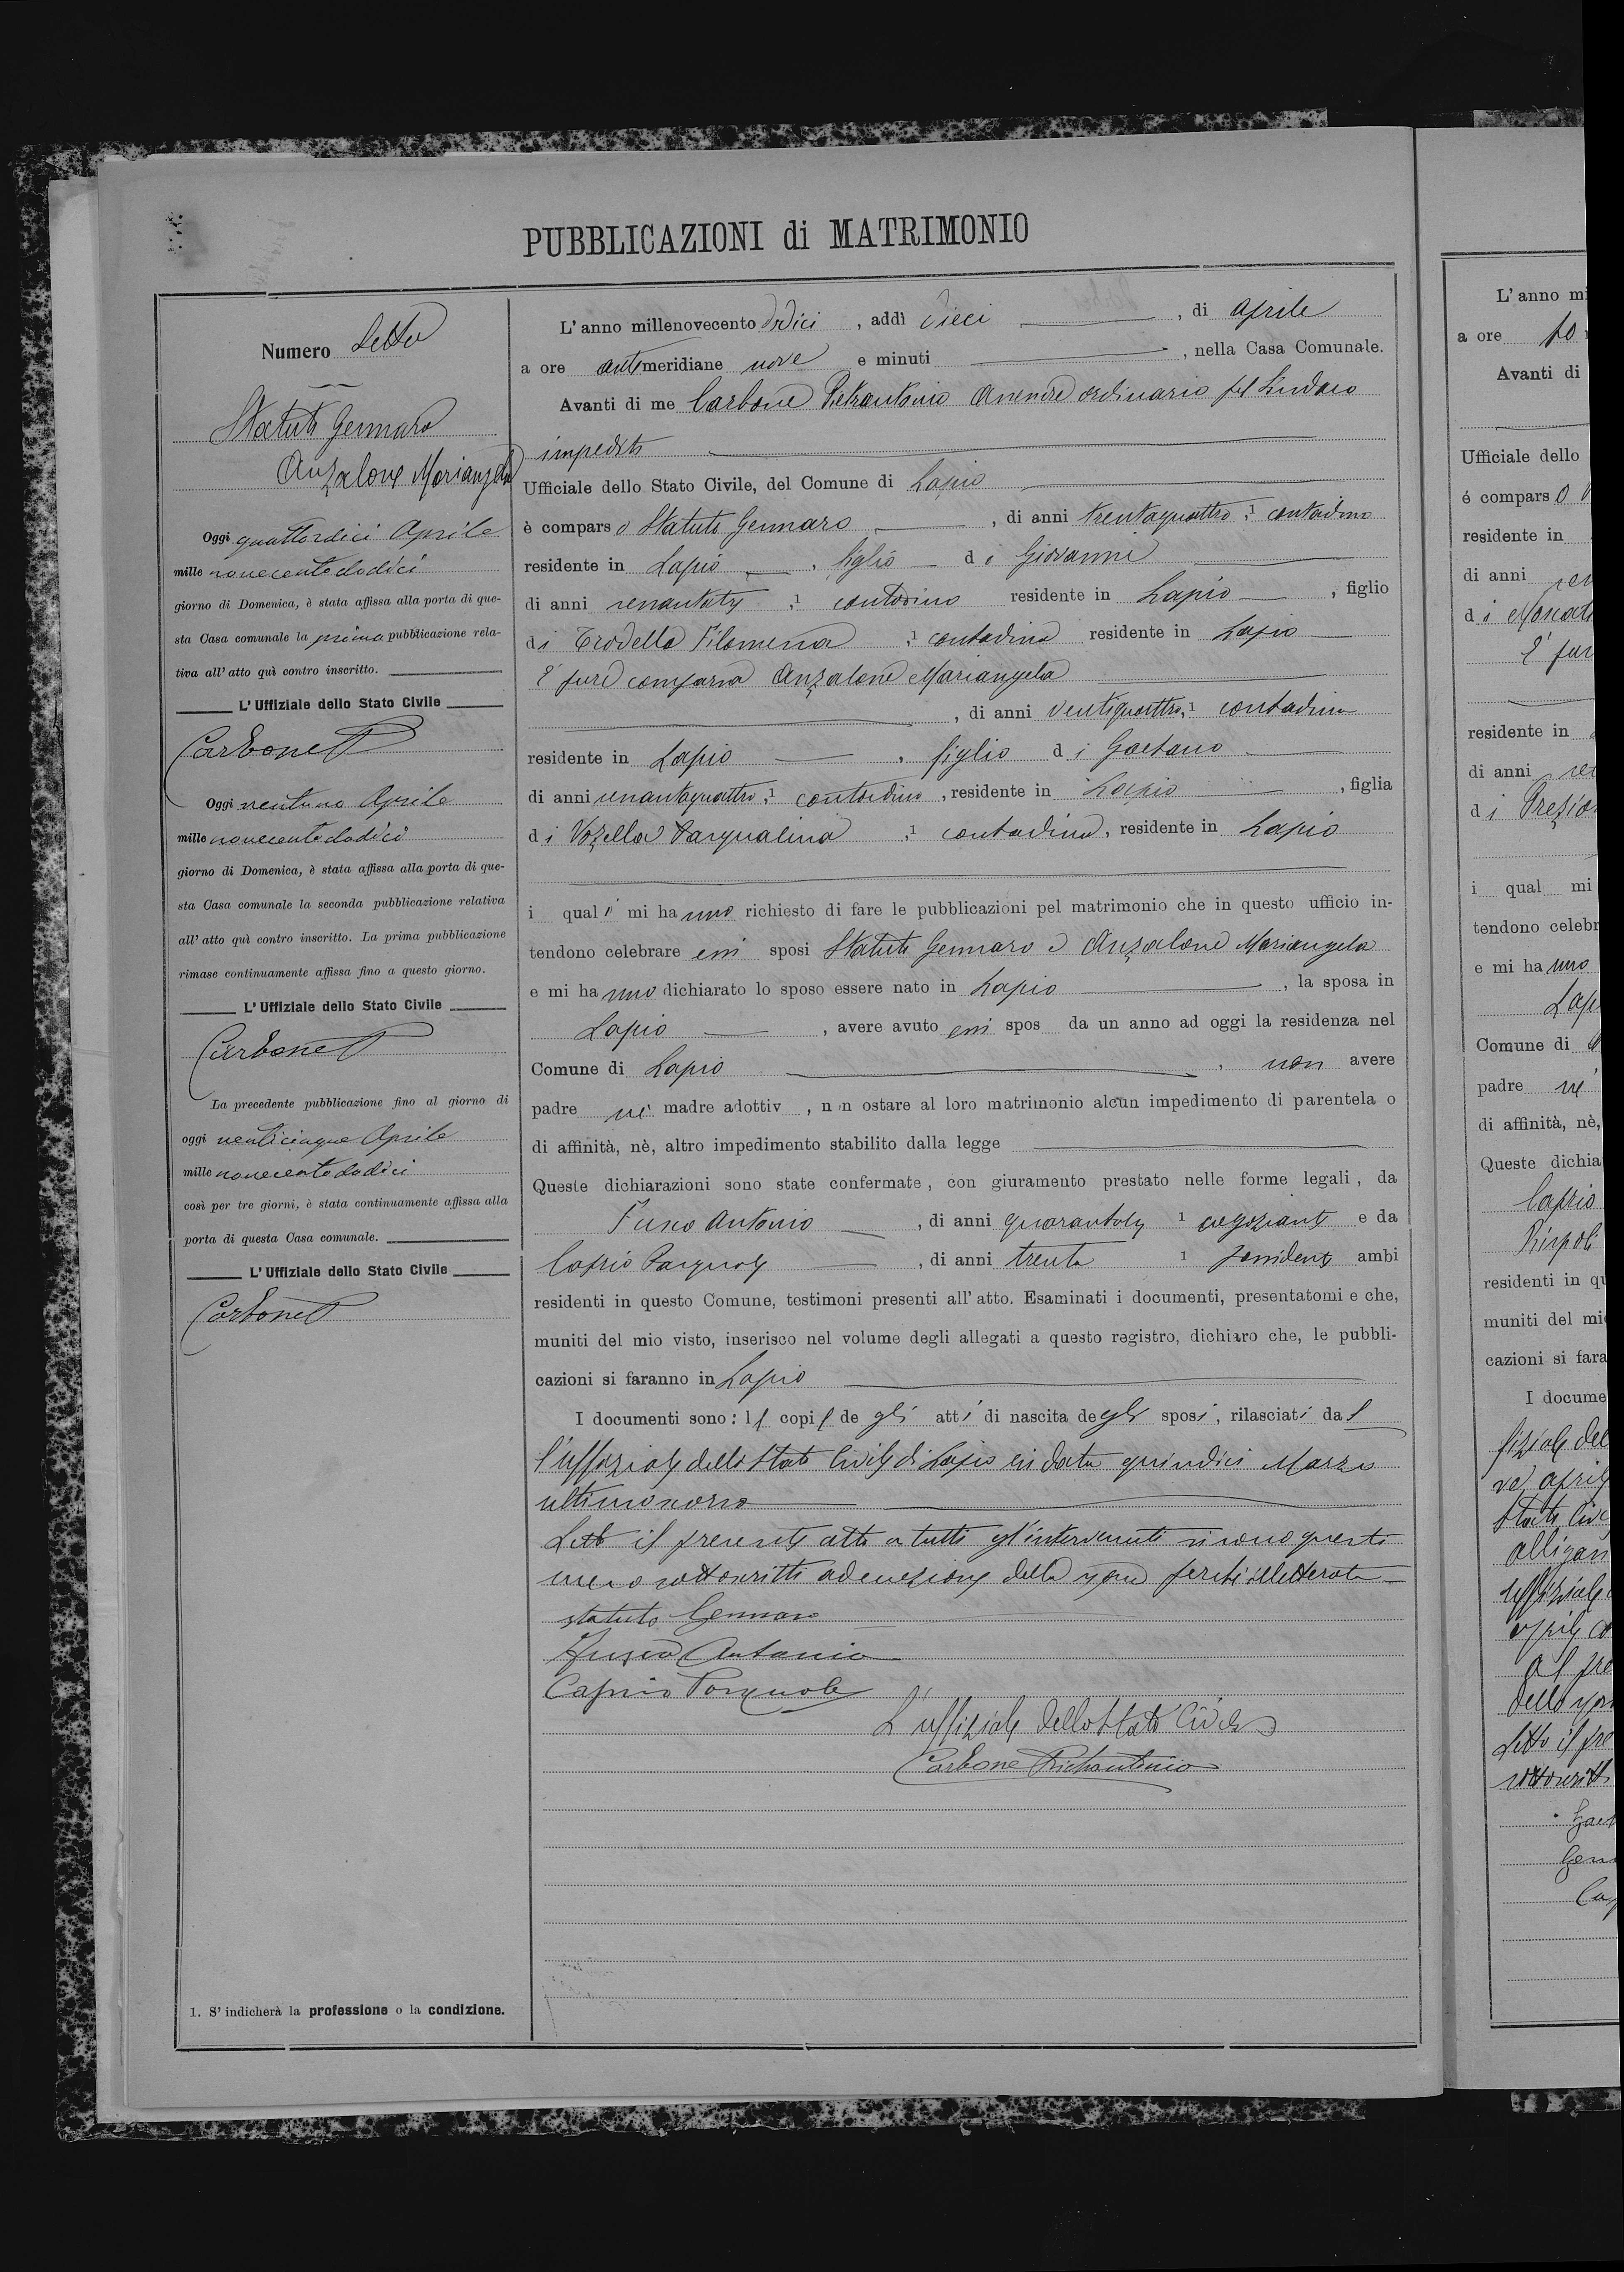 PUBBLICAZIONI di MATRIMONIO
Numero Sette
Statuto Gennaro
Anzalone Mariangela
Oggi quattordici Aprile
mille novecentododici
giorno di Domenica, è stata affissa alla porta di que-
sta Casa comunale la prima pubblicazione rela-
tiva all' atto quì contro inscritto.
L' Uffiziale dello Stato Civile
Carbone P
Oggi ventuno Aprile
mille novecentododici
giorno di Domenica, è stata affissa alla porta di que-
sta Casa comunale la seconda pubblicazione relativa
all' atto quì contro inscritto. La prima pubblicazione
rimase continuamente affissa fino a questo giorno.
L' Uffiziale dello Stato Civile
Carbone P
La precedente pubblicazione fino al giorno di
oggi venticinque Aprile
mille novecentododici
così per tre giorni, è stata continuamente affissa alla
porta di questa Casa comunale.
L' Uffiziale dello Stato Civile
Carbone P
1. S' indicherà la professione o la condizione.
L' anno millenovecento dodici , addì dieci , di aprile
a ore antimeridiane nove e minuti , nella Casa Comunale.
Avanti di me Carbone Pietrantonio Assessore ordinario pel Sindaco
impedito
Ufficiale dello Stato Civile, del Comune di Lapio
è comparso Statuto Gennaro , di anni trentaquattro , 1 contadino
residente in Lapio , figlio di Giovanni
di anni , 1 contadino residente in Lapio , figlio
di Trodella Filomena , 1 contadina residente in Lapio
E' pure comparsa Anzalone Mariangela
, di anni ventiquattro, 1 contadina
residente in Lapio , figlia di Gaetano
di anni sessantaquattro, 1 contadino , residente in Lapio , figlia
di Vozella Pasqualina , 1 contadina, residente in Lapio
i quali mi hanno richiesto di fare le pubblicazioni pel matrimonio che in questo ufficio in-
tendono celebrare essi sposi Statuto Gennaro e Anzalone Mariangela
e mi hanno dichiarato lo sposo essere nato in Lapio , la sposa in
Lapio , avere avuto essi spos da un anno ad oggi la residenza nel
Comune di Lapio , non avere
padre nè madre adottiv , n n ostare al loro matrimonio alcun impedimento di parentela o
di affinità, nè, altro impedimento stabilito dalla legge
Queste dichiarazioni sono state confermate, con giuramento prestato nelle forme legali, da
Fusco Antonio , di anni 1 negoziante e da
Caprio Pasquale , di anni trenta 1 possidente ambi
residenti in questo Comune, testimoni presenti all' atto. Esaminati i documenti, presentatomi e che,
muniti del mio visto, inserisco nel volume degli allegati a questo registro, dichiaro che, le pubbli-
cazioni si faranno in Lapio
I documenti sono: le copie degli atti di nascita degli sposi, rilasciati dal
l'uffiziale dello Stato Civile di Lapio in data quindici Marzo
ultimo
Letto il presente atto a tutti gl'intervenuti si sono questi
meco sottoscritti ad eccezione della sposa perchè illetterata
Statuto Gennaro
Fusco Antonio
Caprio Pasquale
L'uffiziale dello Stato Civile
Carbone Pietrantonio
L' anno mi
a ore
Avanti di
Ufficiale dello
é comparso
residente in
di anni
di
E' pur
residente in
di anni
di
i qual mi
tendono celebr
e mi hanno
Lapi
Comune di
padre nè
di affinità, nè,
Queste dichia
Caprio
Rispoli
residenti in qu
muniti del mi
cazioni si fara
I docume
fiziale del
Stato Civ
uffiziale
Letto il pre
sottoscritt